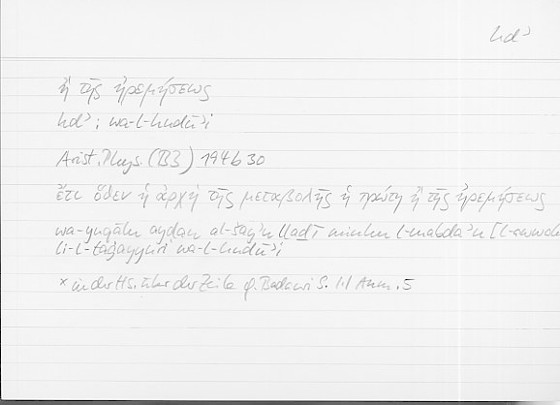 hdʾ
ἢ τῆς ἠρεμήσεως
hdʾ ; wa-l-hudūʾi
Arist. Phys. (B3) 194b30
ἔτι ὅθεν ἡ ἀρχὴ τῆς μεταβολῆς ἡ πρώτη ἢ τῆς ἠρεμήσεως
wa-yuqālu ayḍan al-šayʾu llaḏī minhu l-mabdaʾu
li-l-taġayyuri wa-l-hudūʾi
× in der Hs. über der Zeile Badawi S. Anm. 5